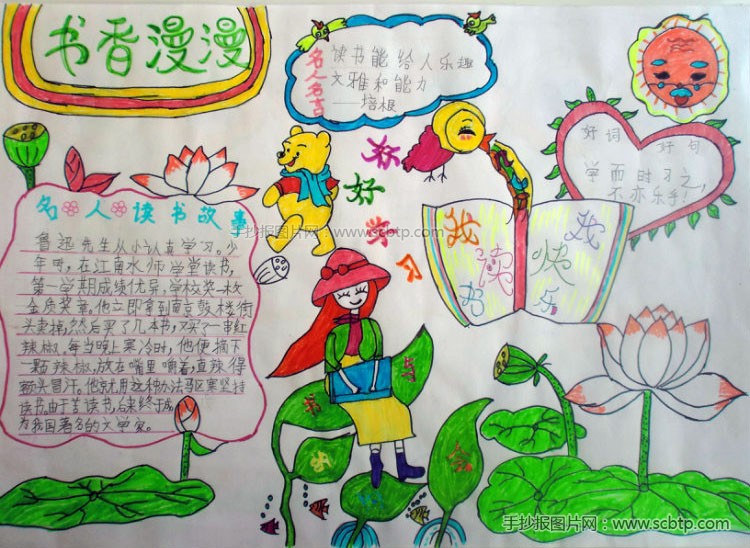 书香漫漫
名人名言
读书能给人乐趣
文雅和能力
——培根
好词 好句
学而时习之,
不亦乐乎!
好
学
习
手抄报图片网:www.scbtp.com
我读书
我快乐
名人读书故事
鲁迅先生从小认真学习。少
年时,在江南水师学堂读书,
第一学期成绩优异,学校奖一枚
金质奖章。他立即拿到南京鼓楼街
头卖掉,然后买了几本书,又买了一串红
辣椒。每当晚上寒冷时,他便摘下
一颗辣椒,放在嘴里嚼着,直辣得
额头冒汗。他就用这种办法驱寒坚持
读书。由于苦读书,后来终于成
为我国著名的文学家。
书
与
手抄报图片网:www.scbtp.com